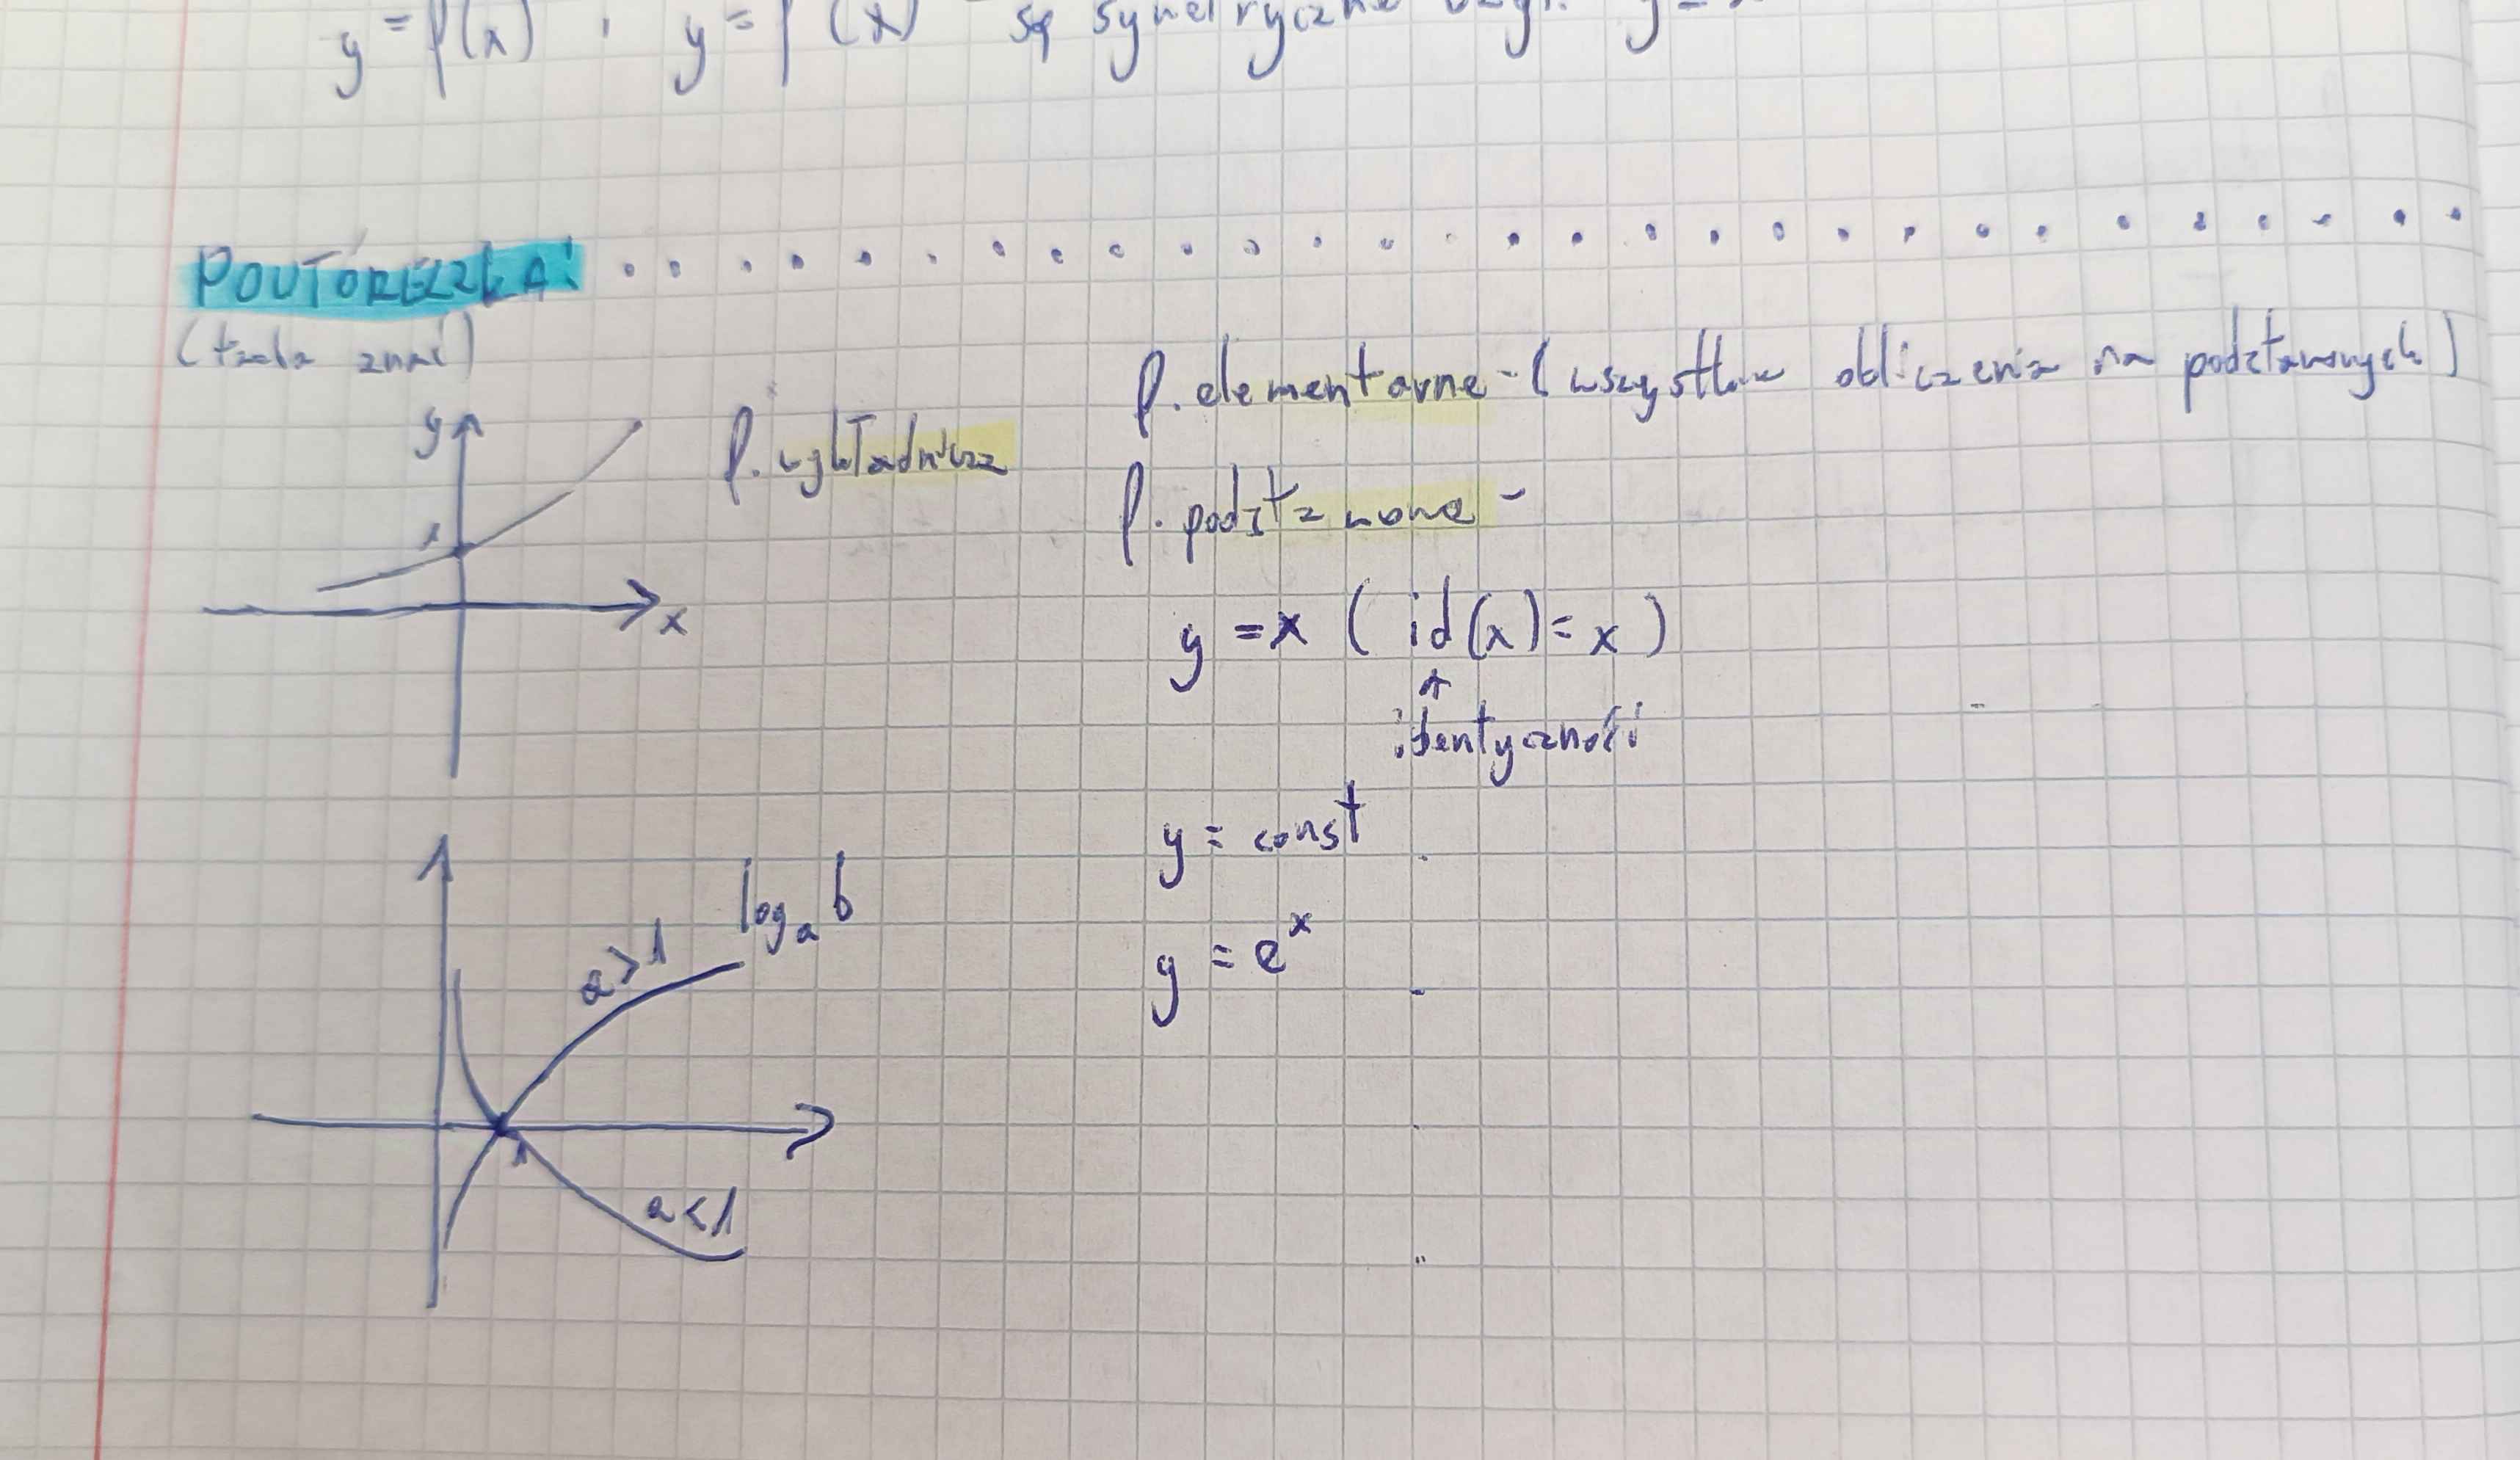 y = f(x) i y = f (x) są symetryczne wzgl. y =
POWTÓRECZKA!
(trzeba znać)
y
f. wykładnicza
1
x
f. elementarne - (wszystkie obliczenia na podstawowych)
f. podstawowe -
y = x ( id(x) = x )
identyczność
y = const
y = eˣ
logₐ b
a > 1
1
a < 1